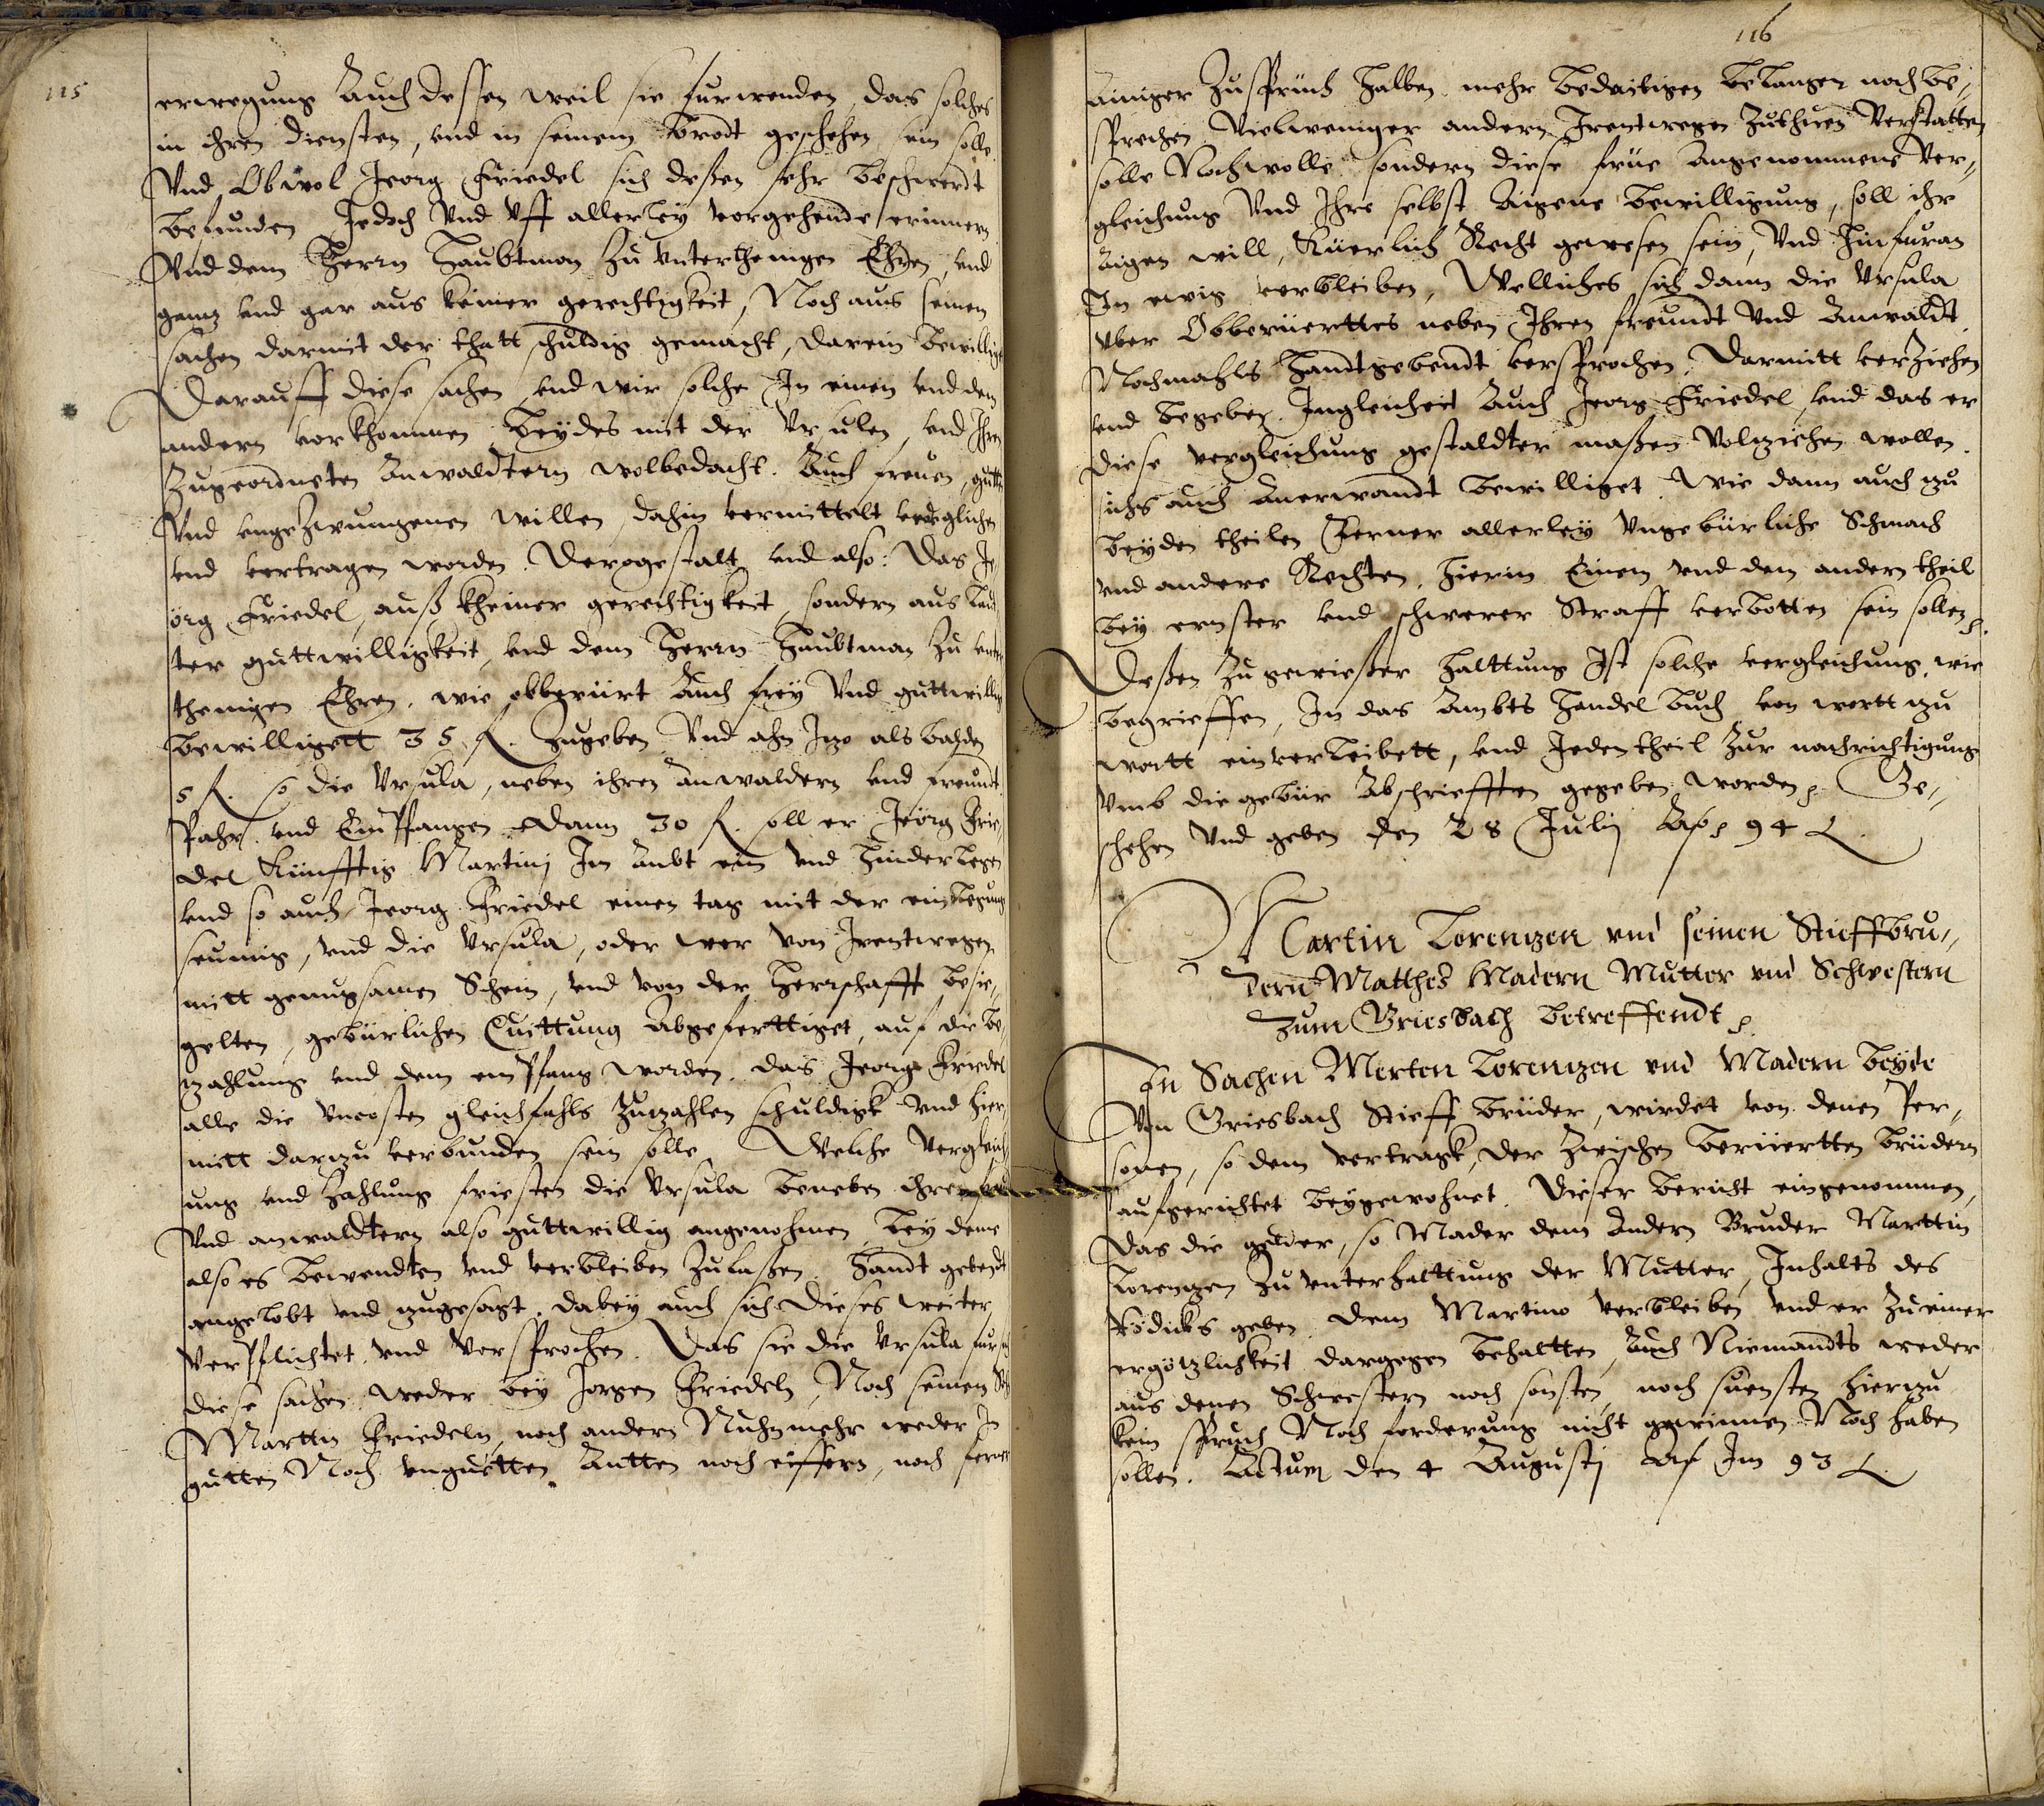 115
erwegung Auch dessen weil sie furwenden, das solches
in ihren diensten, vnd in seinem brodt geschehen sein solle
Vnd Obwol Jeorg Friedel sich deßen sehr beschwerdt
befunden Jedoch Vnd Vff allerley vorgehende erinnern
Vnd dem Herrn Haubtman zu vnterthenigen Ehren, vnd
gantz vnd gar aus keiner gerechtigkeit, Noch aus seinen
sachen darmit der thatt schuldig gemacht, darein bewillig
Darauff diese sachen vnd wir solche In einen vnd dem
andern vorkhommen, Beydes mit der Vrsulen, vnd Ihren
Zugeordneten Anwaldtern wolbedacht. Auch freuen, gutten
Vnd vngezwungenen willen, dahin vermittelt verglichen
vnd vertragen worden. Derogestalt, vnd also: Das Je,,
örg Friedel, auß kheiner gerechtigkeit, sondern aus lau,,
ter guttwilligkeit, vnd dem Herrn Haubtman zu vnter
thenigen Ehren, wie obberürt Auch frey Vnd guttwillig
bewilligett 35 fl. Zugeben, Vnd ahn Itzo als balden
5 fl. so die Vrsula, neben ihren anwaldern vnd freundt
Pahr vnd Empfangen. Dann 30 fl. soll er Jeörg Frie,,
del Künfftig Martinj Im Ambt ein vnd hinderlegen
vnd so auch Jeorg Friedel einen tag mit der einlegung
seumig, vnd die Vrsula, oder wer von Irentwegen
mitt genugsamen Schein, vnd von der Herrschafft besie,,
gelten, gebürlichen Quittung Abgeferttiget, auf die be,,
zahlung vnd dem empfang worden, das Jeorg Friedel
alle die vncosten gleichfahls zuzahlen schuldigk Vnd hier,,
mitt darzu verbunden sein solle. Welche Vergleich,,
ung vnd Zahlung fristen die Vrsula beneben ihren
Vnd anwaldtern also guttwillig angenohmen, bey deme
also es bewendten vnd verbleiben zulaßen. Handt gebendt
angelobt vnd zugesagt, dabey auch sich dieses weiter
Verpflichtet, vnd Versprochen. Das sie die Vrsula
diese sachen weder bey Jorgen Friedeln, Noch seinem
Martin Friedeln, noch andern Nuhn mehr weder In
gutten Noch vnguetten Antten noch eiffern, noch ferner
116
Ainiger Zusprüch halben mehr bedaitigen belangen noch be,,
sprechen Vielweniger andern Irentwegen Zuthuen Verstatten
solle Noch wolle, sondern diese freue angenommene Ver,,
gleichung Vnd Ihre selbst Aigene bewilligung, soll ihr
Aigen will, Kürlich Recht gewesen sein, Vnd hinfuran
In ewig verbleiben, Welliches sich dann die Vrsula
Vber Obberüerttes neben Ihren freundt Vnd Anwaldt
Nochmahls Handtgebendt versprochen, darmitt verziehen
vnd begeben. Ingleichen Auch Jeorg Friedel, vnd das er
diese vergleichung gestaldter maßen Volnziehen wollen
ichs auch Anerwandt bewilliget, Wie dann auch zu
beyden theilen Ferner allerley Vngebürliche Schmach
vnd andere Rechten, hierin Einem vnd dem andern theil
bey ernster vnd schwerer Straff verbotten sein sollen.
Deßen zu gewießer Halttung Ist solche vergleichung, wie
begrieffen, In das Ambts Handel buch von wortt zu
wortt einverleibett, vnd Jeden theil zur nachrichtigung
Vmb die gebür Abschriefften gegeben worden. Ge,,
schehen Vnd geben den 28 Julij Ao. 94
Martin Lorentzen vnd seinen Stieffbru,,
dern Matthes Madern Mutter vnd Schwestern
zum Griesbach betreffendt.
In Sachen Merten Lorentzen vnd Madern beyde
Von Griesbach Stieff brüder, wirdet von denen Per,,
sonen, so dem vertragk, der zwischen berüertten brüdern
aufgerichtet beygewohnet. Dieser bericht eingenommen,
Das die gelder, so Mader dem Andern Bruder Marttin
Lorentzen zu vnterhalttung der Mutter, Inhalts des
geben, dem Martino Verbleiben vnd er zu einer
ergötzlichkeit dargegen behaltten, Auch Niemandts weder
aus denen Schwestern noch sonsten, noch sunsten hierzu
kein spruch Noch forderung nicht gewinnen Noch haben
sollen. Actum den 4 Augustj Im 93